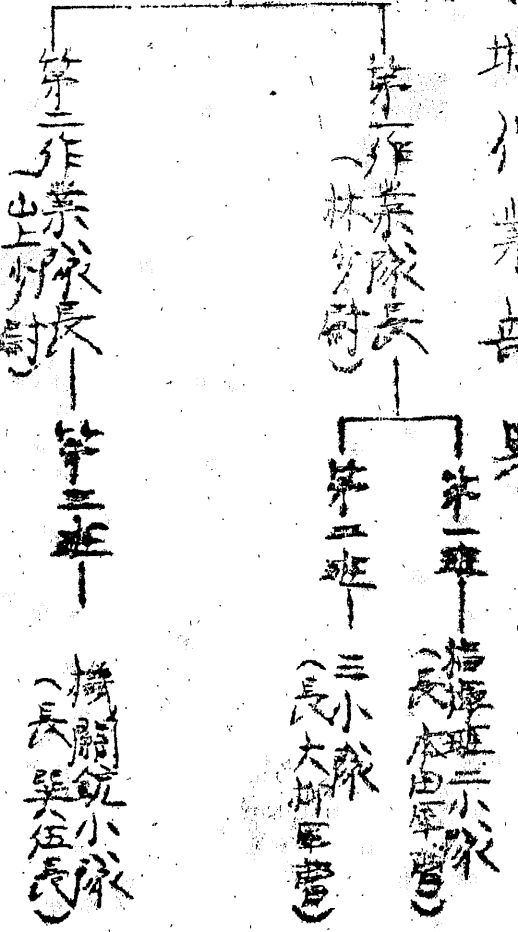 作業音
第一作業隊長
（林少尉）
第一班
指揮班二小隊
（長 本田軍曹）
第二班
三小隊
（長 大柳軍曹）
第二作業隊長
（山上少尉）
第三班
機關銃小隊
（長 巽伍長）